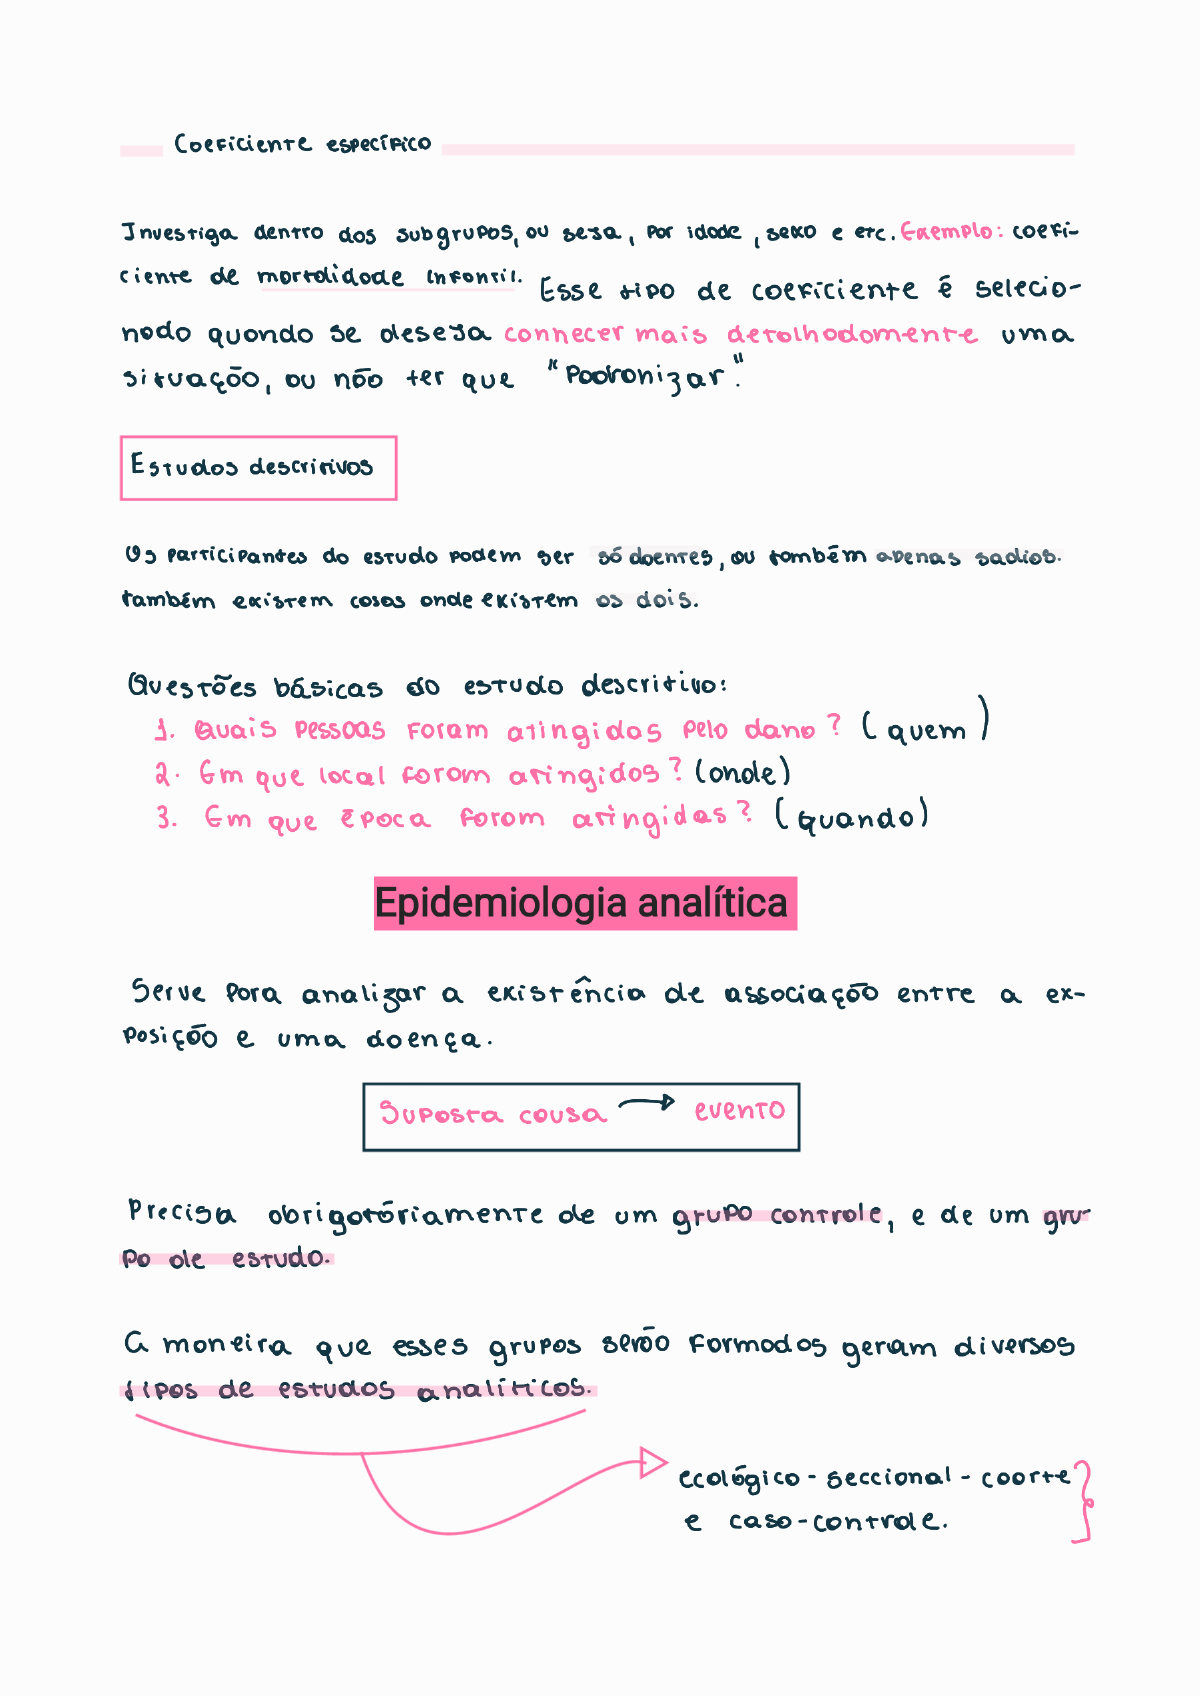 Coeficiente específico
Investiga dentro dos subgrupos, ou seja, por idade, sexo e etc. Exemplo: coefi-
ciente de mortalidade infantil. Esse tipo de coeficiente é selecio-
nado quando se deseja conhecer mais detalhadamente uma
situação, ou não ter que "Padronizar".
Estudos descritivos
Os participantes do estudo podem ser só doentes, ou também apenas sadios.
também existem casos onde existem os dois.
Questões básicas do estudo descritivo:
1. Quais pessoas foram atingidas pelo dano? (quem)
2. Em que local foram atingidos? (onde)
3. Em que época foram atingidas? (quando)
Epidemiologia analítica
Serve para analizar a existência de associação entre a ex-
posição e uma doença.
Suposta causa → evento
Precisa obrigatóriamente de um grupo controle, e de um gru-
po de estudo.
A maneira que esses grupos serão formados geram diversos
tipos de estudos analíticos.
ecológico - seccional - coorte
e caso-controle.